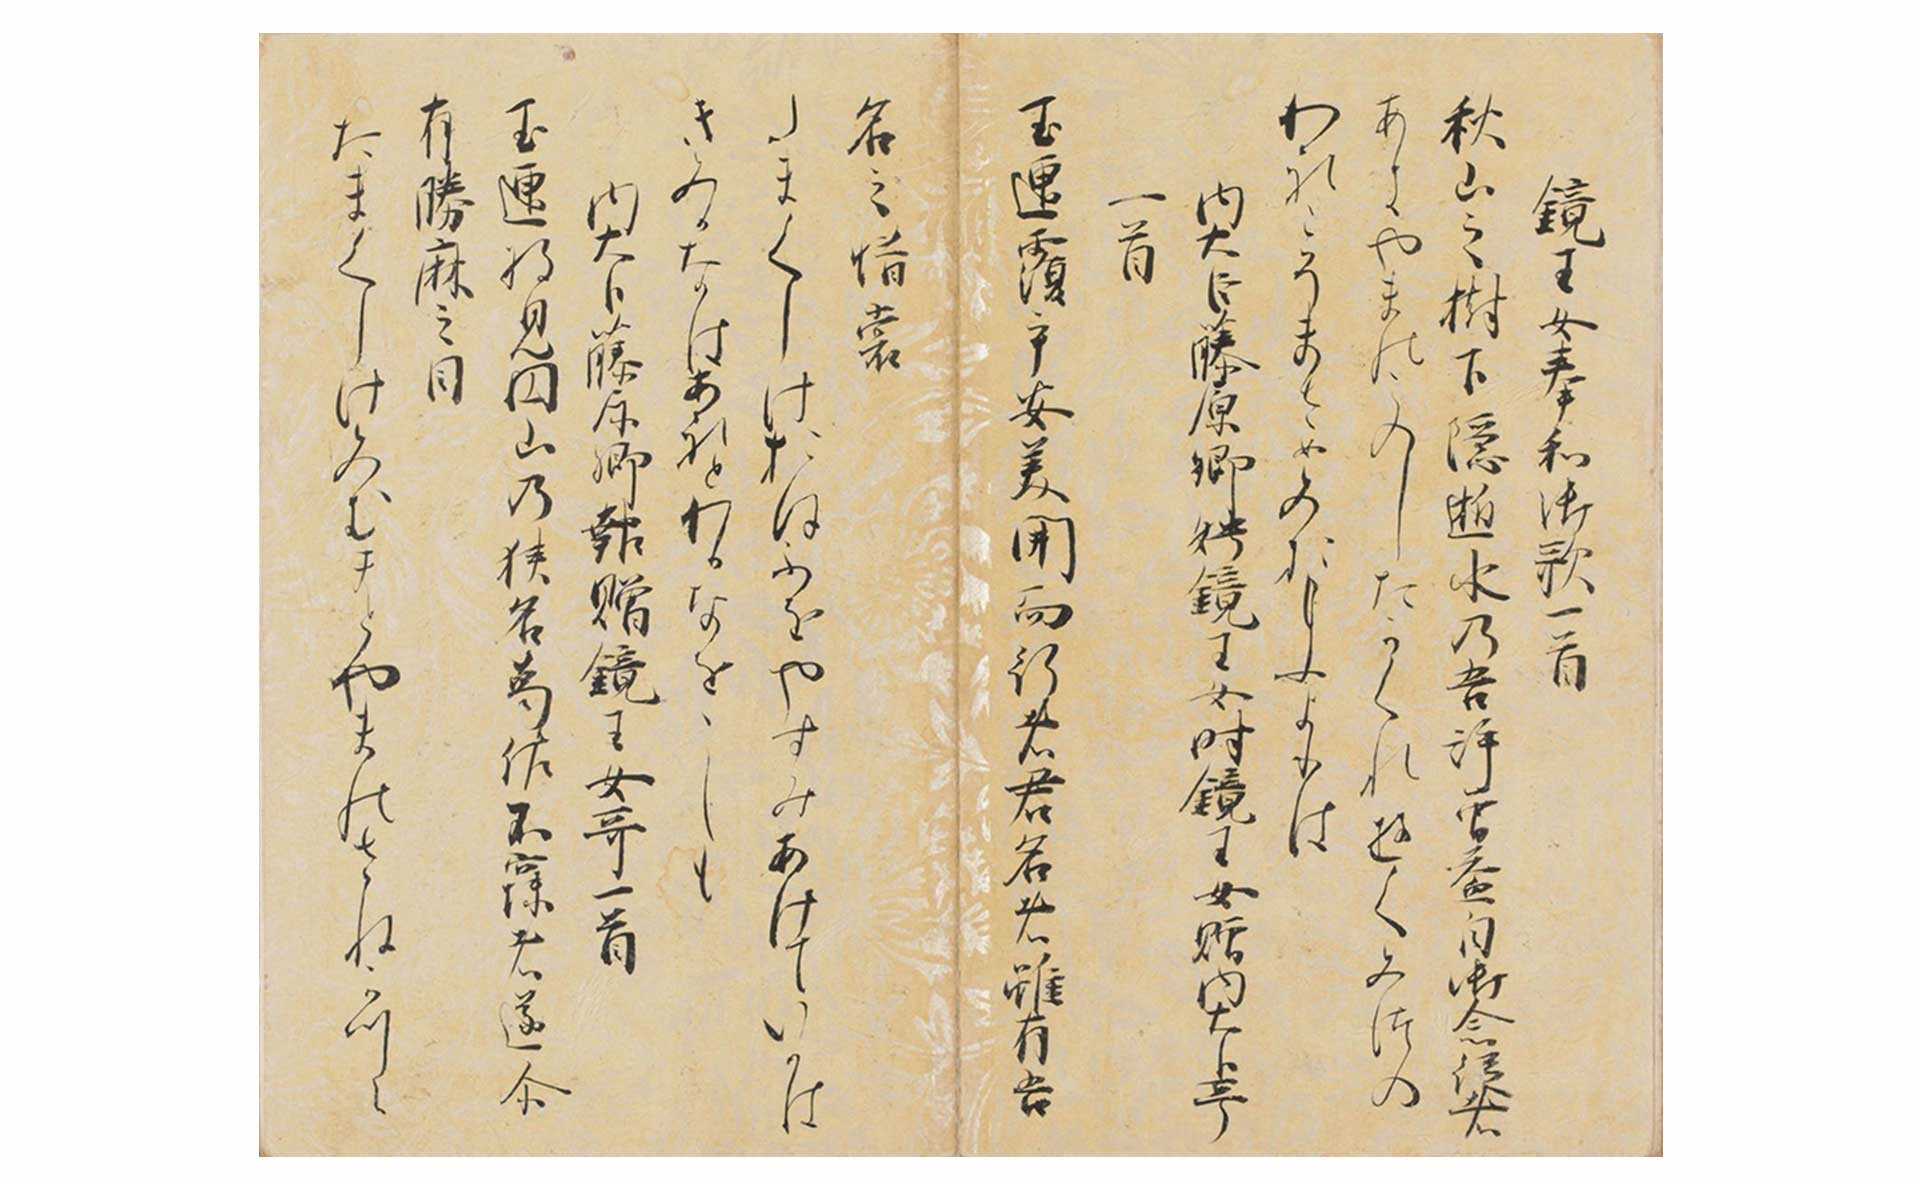 鏡王女奉和御歌一首
秋山之樹下隠逝水乃吾許曽益目御念従者
あきやまのこのしたかくれゆくみつの
われこそまさめみおもふよりは
内大臣藤原卿娉鏡王女時鏡王女贈内大臣哥
一首
玉匣覆乎安美開而行者君名者雖有吾
名之惜裳
たまくしけおほふをやすみあけていかは
きみかなはあれとわかなをゝしも
内大臣藤原卿報贈鏡王女哥一首
玉匣将見円山乃狭名葛佐不寐者遂尓
有勝麻之目
たまくしけみむまとやまのさねかつら